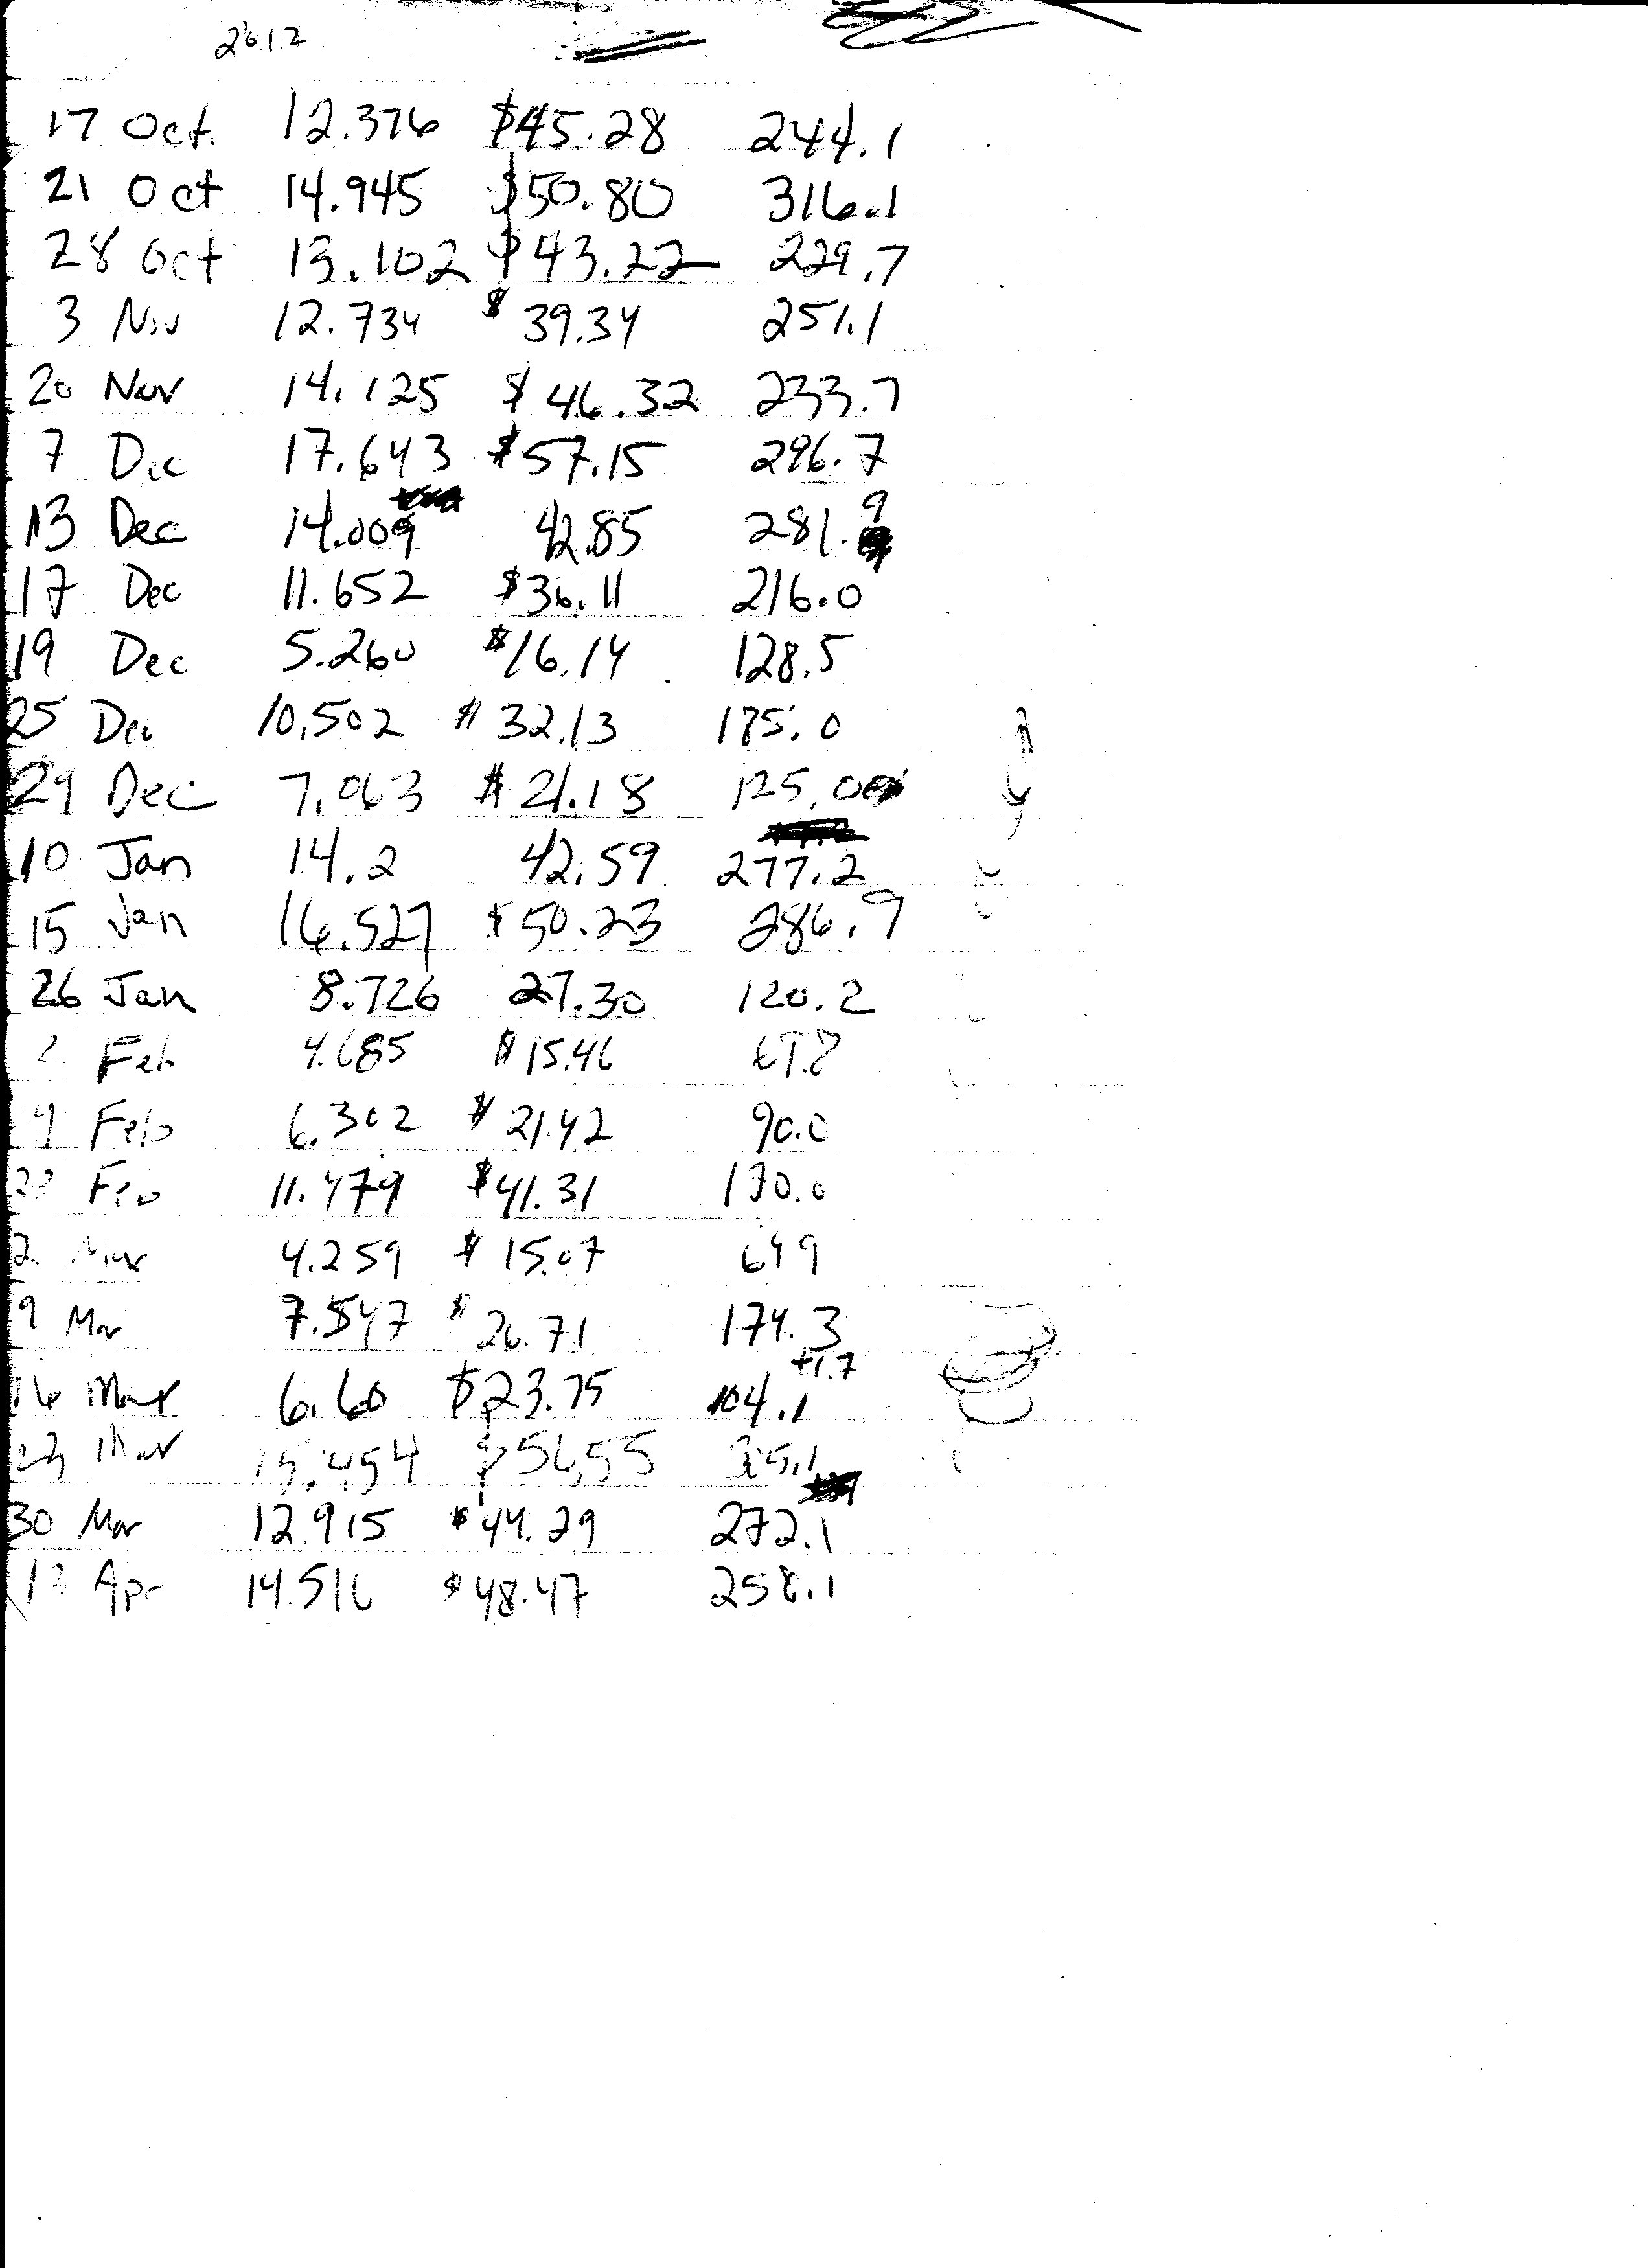 2012
17 Oct. 12.376 $45.28 244.1
21 Oct 14.945 $50.80 316.1
28 Oct 13.102 $43.22 229.7
3 Nov 12.734 $39.34 251.1
20 Nov 14.125 $46.32 233.7
7 Dec 17.643 $57.15 296.7
13 Dec 14.009 42.85 281.9
17 Dec 11.652 $36.11 216.0
19 Dec 5.260 $16.14 128.5
25 Dec 10.502 $32.13 175.0
29 Dec 7.063 $21.18 125.0
10 Jan 14.2 42.59 277.2
15 Jan 16.527 $50.23 286.9
26 Jan 8.726 27.30 120.2
2 Feb 4.685 $15.46
9 Feb 6.302 $21.42 90.0
Feb 11.479 $41.31 170.0
2 Mar 4.259 $15.07 64.9
9 Mar 7.547 $26.71 174.3
+1.7
16 Mar 6.60 $23.75 104.1
23 Mar 15.454 $56.55
30 Mar 12.915 $44.29 272.1
Apr 14.516 $48.47 258.1